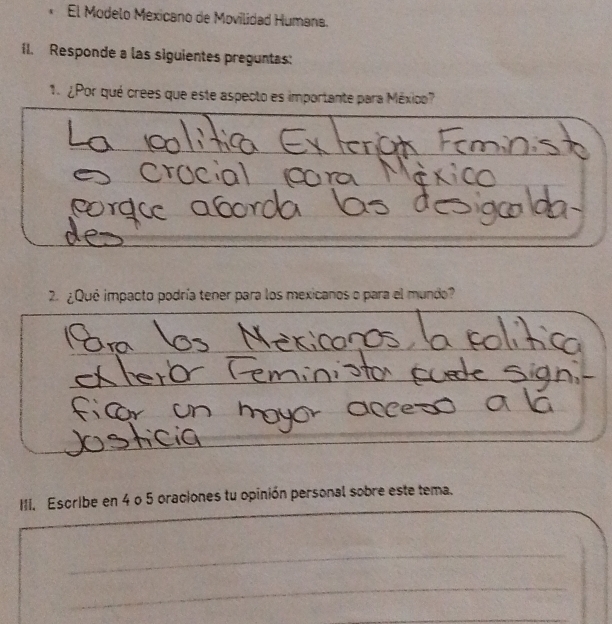 • El Modelo Mexicano de Movilidad Humana.
II. Responde a las siguientes preguntas:
1. ¿Por qué crees que este aspecto es importante para México?
La politica Exterior Feminista
es crucial para México
porque aborda las desigualda-
des
2. ¿Qué impacto podría tener para los mexicanos o para el mundo?
Para los Mexicanos, la politica
exterior Feminista puede signi-
ficar un mayor acceso a la
Justicia
III. Escribe en 4 o 5 oraciones tu opinión personal sobre este tema.